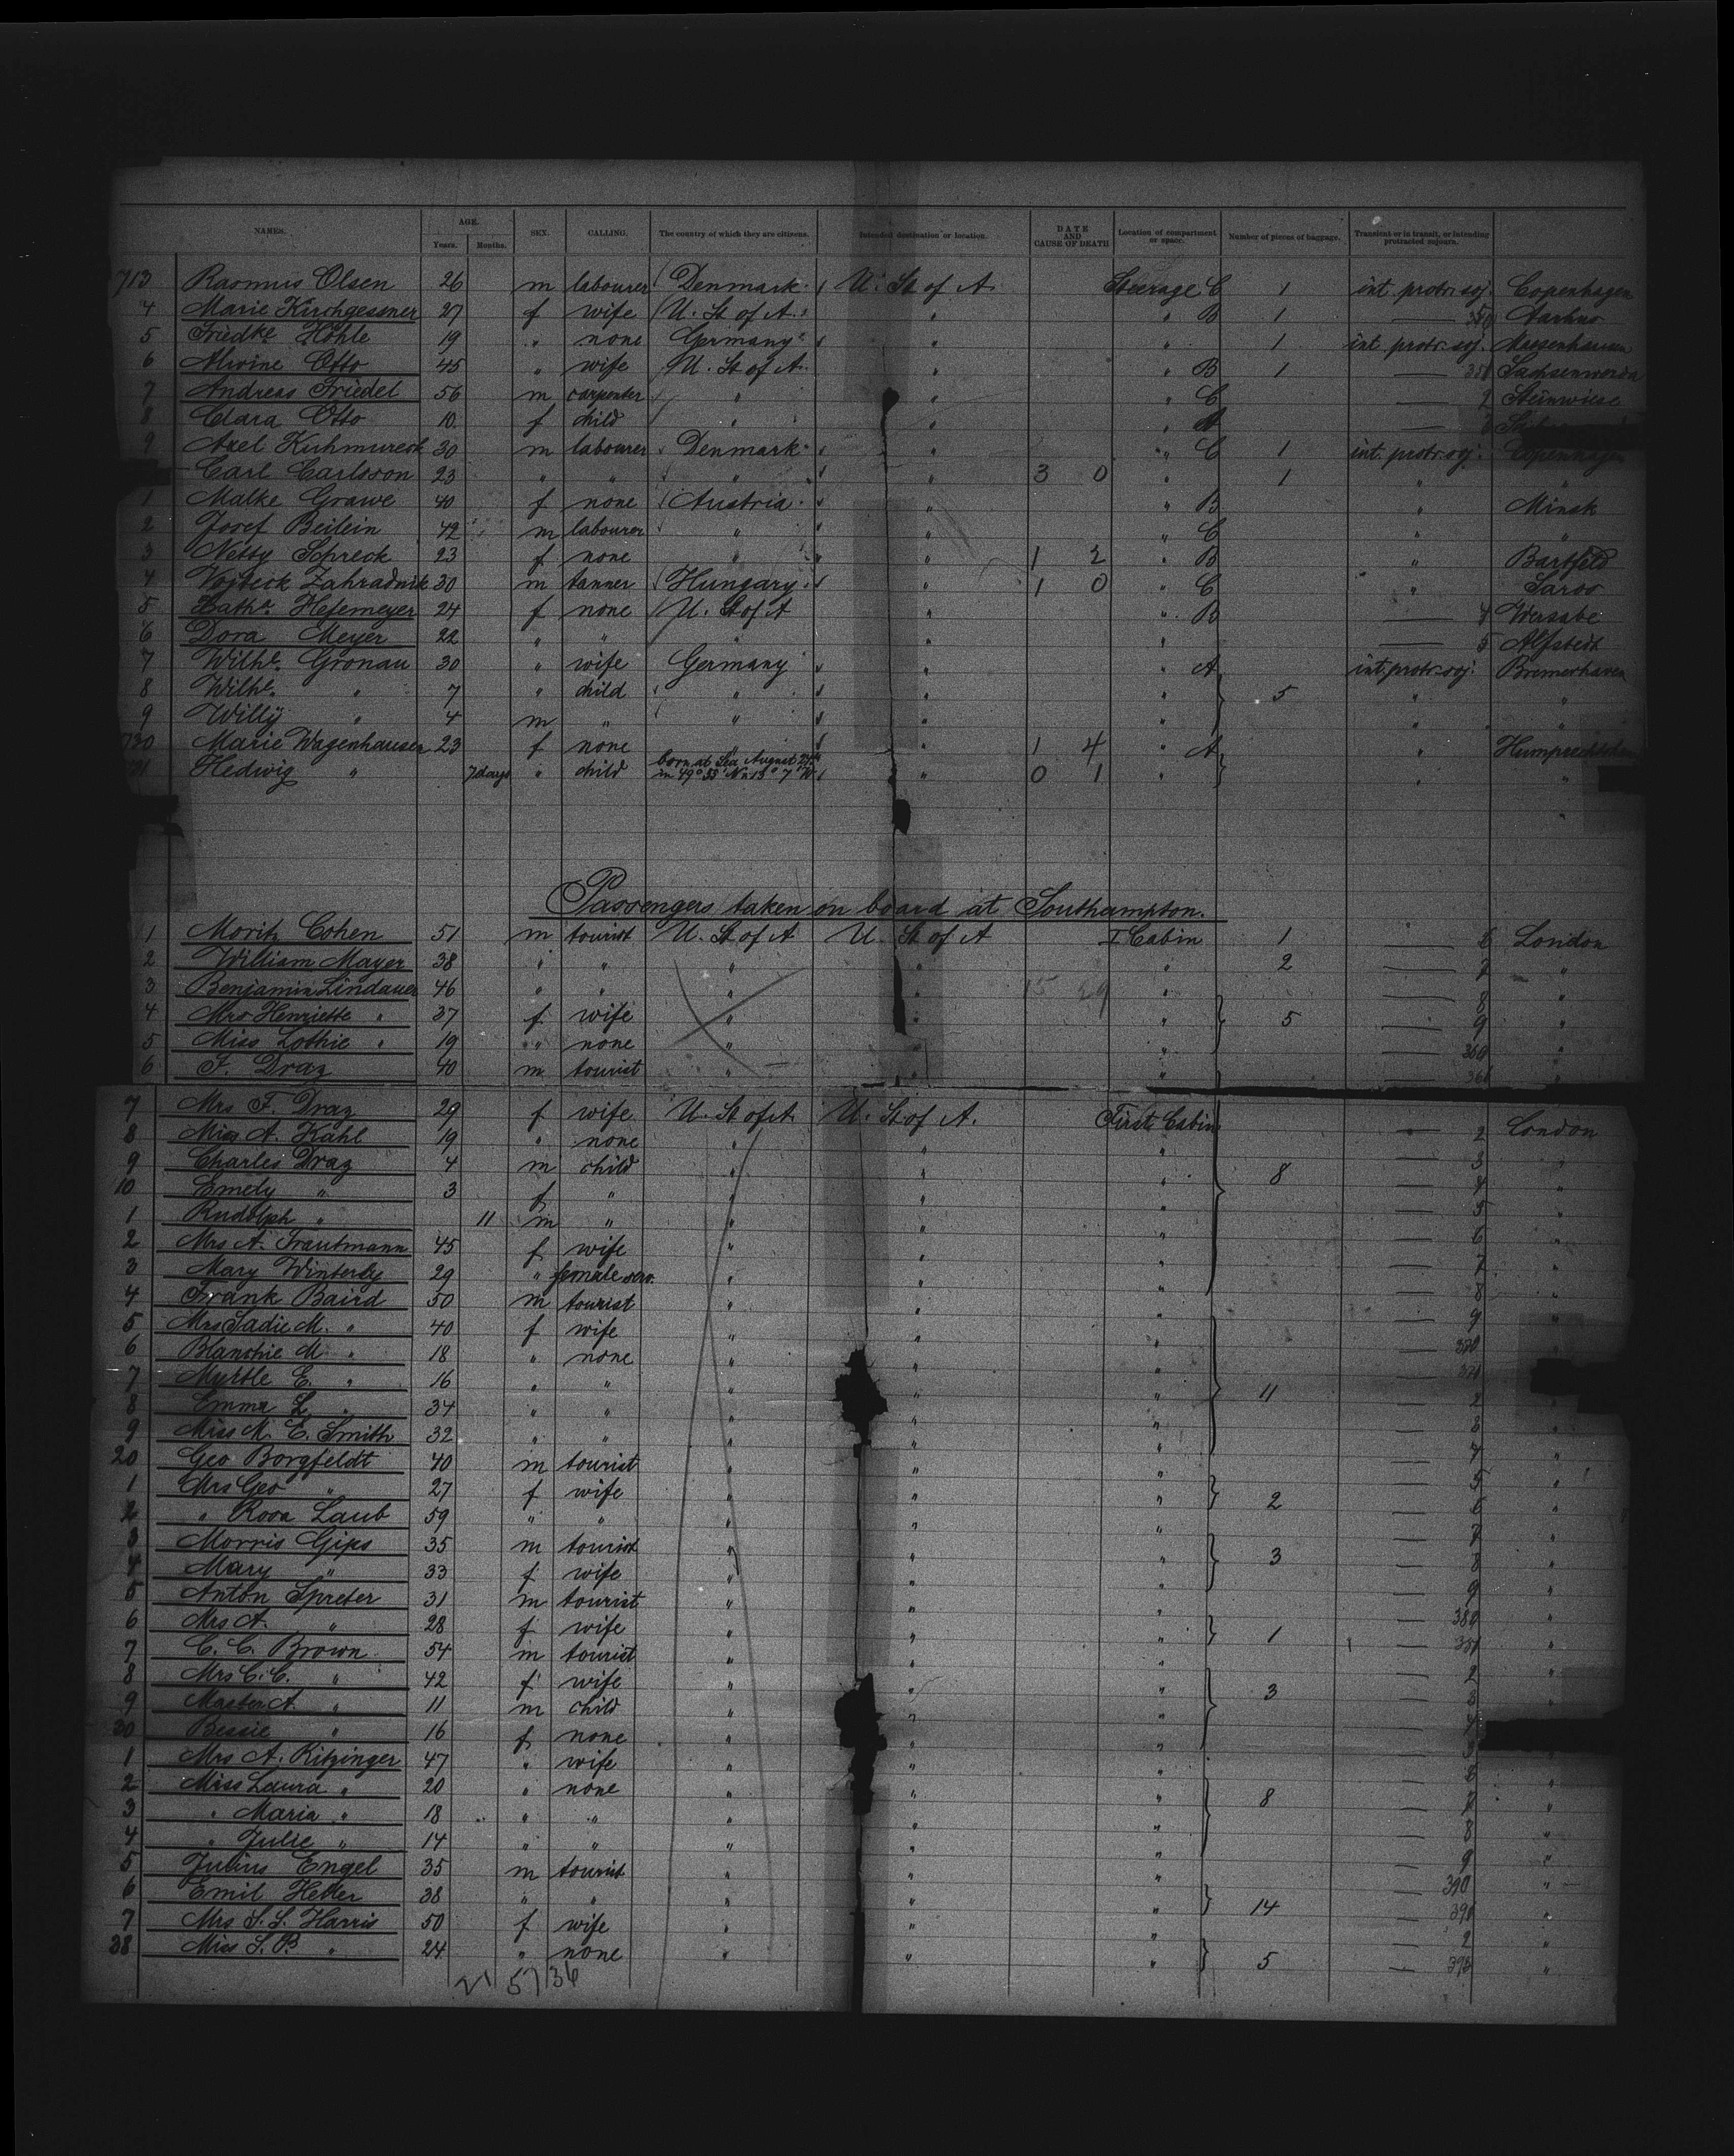 NAMES. AGE. Years. Months. SEX. CALLING. The country of which they are citizens. Intended destination or location. DATE AND CAUSE OF DEATH Location of compartment or space. Number of pieces of baggage. Transient or in transit, or intending protracted sojourn.
713 Rasmus Olsen 26 m labourer Denmark U. St of A Steerage C 1 int. protr. soj. Copenhagen
4 Marie Kirchgessner 27 f wife U. St of A. " " B 1 — 350 Aarhus
5 Friedke Höhle 19 " none Germany " " 1 int. protr. soj. Massenhausen
6 Alwine Otto 45 " wife U. St of A. " B 1 — 351
7 Andreas Friedel 56 m carpenter " " " C — 2 Steinwiese
8 Clara Otto 10 f child " " " A —
9 Axel 30 m labourer Denmark " " C 1 int. protr. soj. Copenhagen
Carl Carlsson 23 " " " " 3 0 " 1 " "
1 Malke Grawe 40 f none Austria " " B " Minsk
2 Josef Beilein 42 m labourer " " " C " "
3 Netty Schreck 23 f none " " 1 2 " B " Bartfeld
4 Zahradnik 30 m tanner Hungary " 1 0 " C " Saros
5 Kathe. Hesemeyer 24 f none U. St of A " " B — 4 Wersabe
6 Dora Meyer 22 " " " " " — 5 Alfstedt
7 Wilhe. Gronau 30 " wife Germany " " A int. protr. soj. Bremerhaven
8 Wilhe. " 7 " child " " " 5 " "
9 Willy " 4 m " " " " " "
730 Marie Wagenhauser 23 f none " " 1 4 " A "
731 Hedwig " 7 days " child born at Sea August 24th in 49° 53' N. 13° 7' W. " 0 1 " " "
Passengers taken on board at Southampton.
1 Moritz Cohen 51 m tourist U. St of A U. St of A I Cabin 1 — 6 London
2 William Mayer 38 " " " " " 2 — 7 "
3 Benjamin Lindauer 46 " " " " 15 29 " — 8 "
4 Mrs Henriette " 37 f wife " " " 5 — 9 "
5 Miss Lothie " 19 " none " " " — 360 "
6 F. Draz 40 m tourist " " " — 361 "
7 Mrs F. Draz 29 f wife U. St of A U. St of A. First Cabin — 2 London
8 Miss A. Kahl 19 " none " " " — 3 "
9 Charles Draz 4 m child " " " 8 — 4 "
10 Emely " 3 f " " " " — 5 "
1 Rudolph " 11 m " " " " — 6 "
2 Mrs A. Trautmann 45 f wife " " " — 7 "
3 Mary Winterby 29 " female serv. " " " — 8 "
4 Frank Baird 50 m tourist " " " — 9 "
5 Mrs Sadie M. " 40 f wife " " " — 370
6 Blanchie M " 18 " none " " " — 371
7 Myrtle E. " 16 " " " " " 11 — 2 "
8 Emma L " 34 " " " " " — 3 "
9 Miss M. E. Smith 32 " " " " " — 4 "
20 Geo Borgfeldt 40 m tourist " " " — 5 "
1 Mrs Geo " 27 f wife " " " 2 — 6 "
2 " Rosa Laub 59 " " " " " — 7 "
3 Morris Gips 35 m tourist " " " 3 — 8 "
4 Mary " 33 f wife " " " — 9 "
5 Anton Spreter 31 m tourist " " " — 380 "
6 Mrs A. " 28 f wife " " " 1 — 381 "
7 C. C. Brown 54 m tourist " " " — 2 "
8 Mrs C. C. " 42 f wife " " " 3 — 3 "
9 Master A. " 11 m child " " " — 4
30 Bessie " 16 f none " " " — 5 "
1 Mrs A. Ritzinger 47 " wife " " " — 6 "
2 Miss Laura " 20 " none " " " 8 — 7 "
3 " Maria " 18 " " " " " — 8 "
4 " Julie " 14 " " " " " — 9 "
5 Julius Engel 35 m tourist " " " — 390 "
6 Emil Heller 38 " " " " " 14 — 391 "
7 Mrs S. S. Harris 50 f wife " " " — 2 "
38 Miss S. B. " 24 " none " " " 5 — 393 "
21 57 36